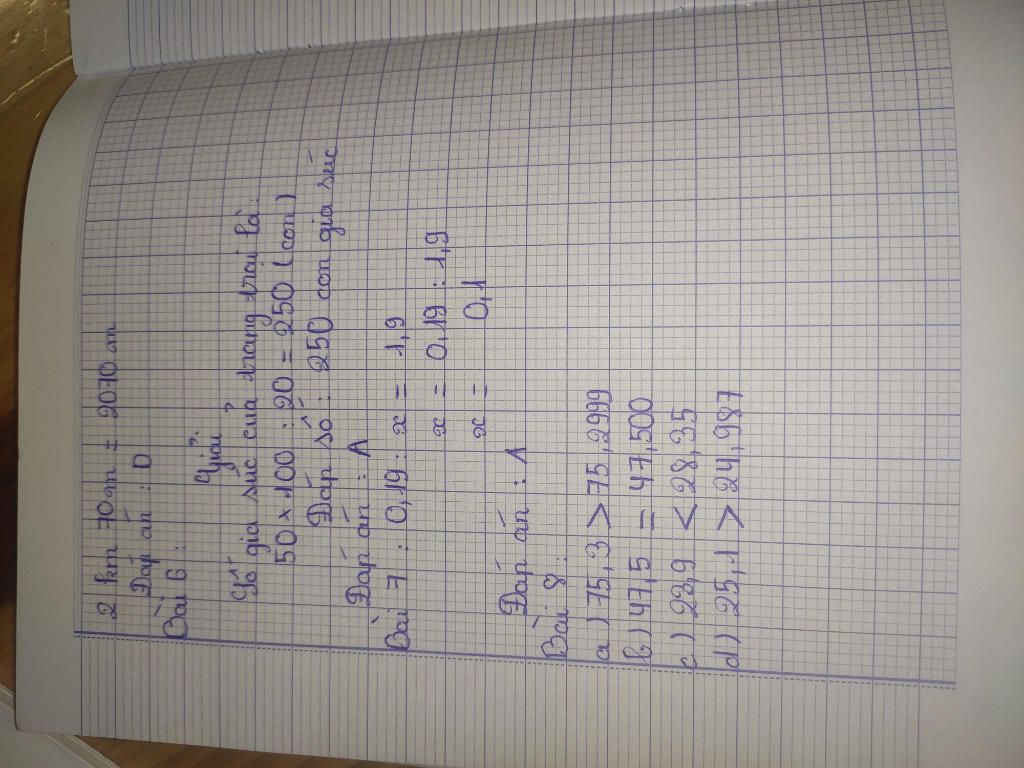 2 km 70 m = 2070 m
Đáp án : D
Bài 6 :
Giải
Số gia súc của trang trại là :
50 × 100 : 20 = 250 ( con )
Đáp số : 250 con gia súc
Đáp án : A
Bài 7 : 0,19 : x = 1,9
x = 0,19 : 1,9
x = 0,1
Đáp án : A
Bài 8 :
a ) 75,3 > 75,2999
b ) 47,5 = 47,500
c ) 23,9 < 28,35
d ) 25,1 > 24,987